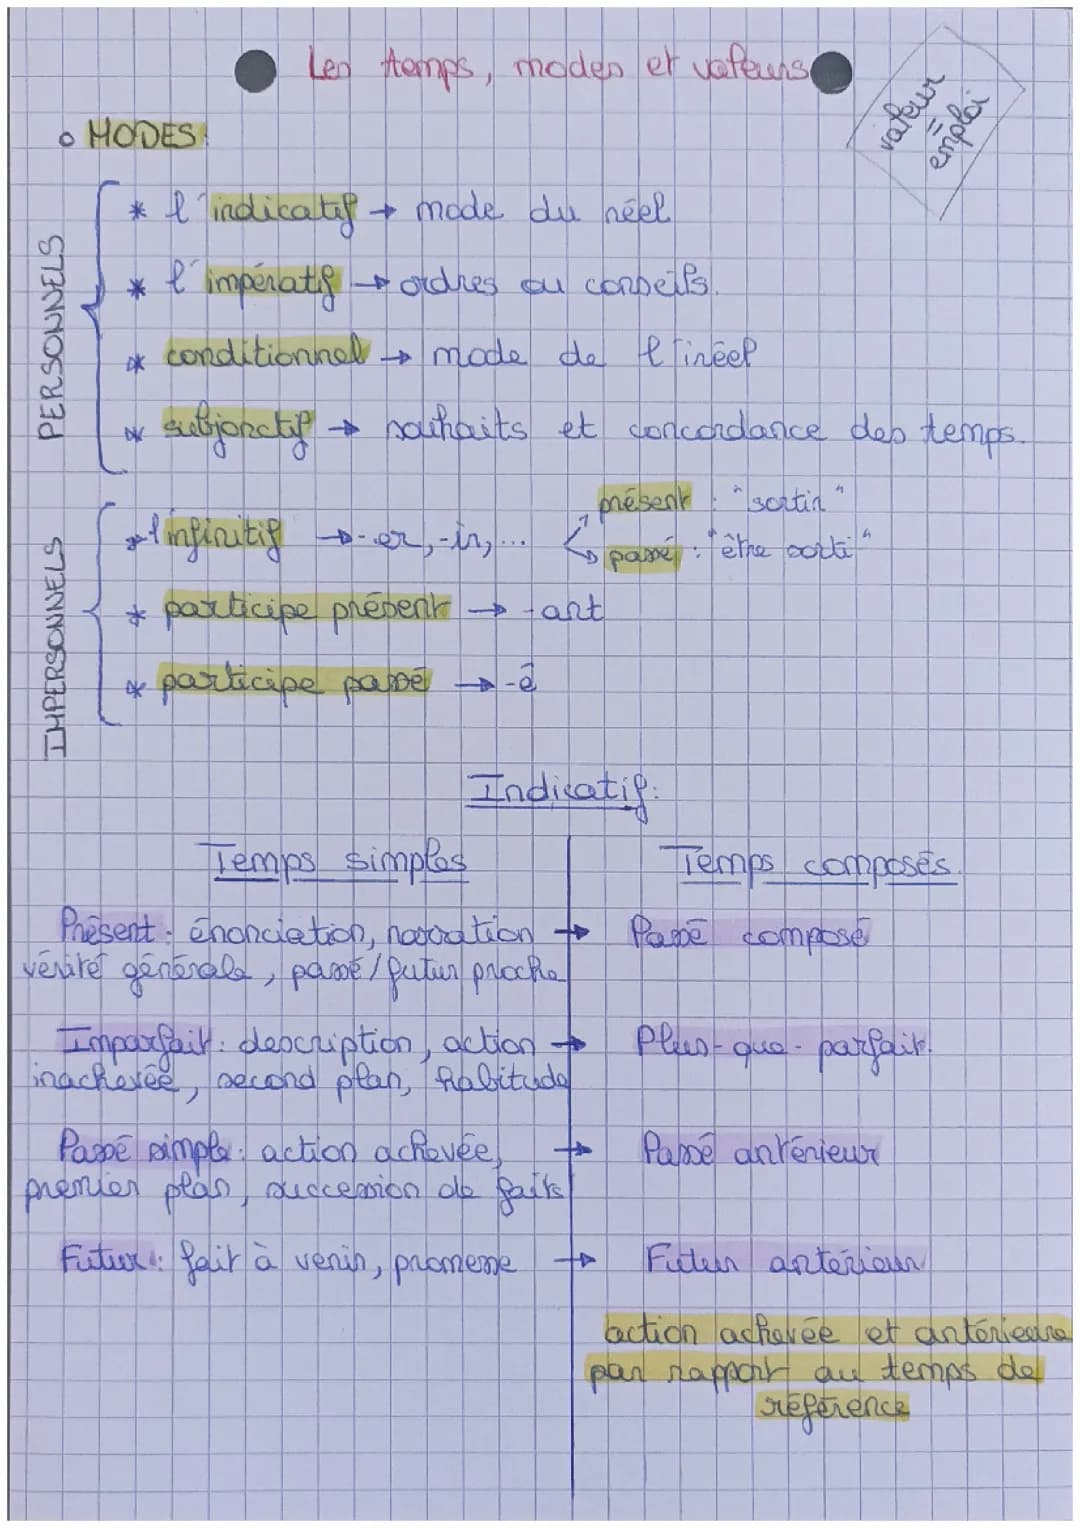 Les temps, modes et valeurs
valeur
=
emploi
MODES:
PERSONNELS
* l'indicatif → mode du réel
* l'impératif → ordres ou conseils.
* conditionnel → mode de l'iréel
* subjonctif → souhaits et concordance des temps.
IMPERSONNELS
* l'infinitif → -er, -ir, ...
présent : "sortir"
passé : "être sorti"
* participe présent → -ant
* participe passé → -é
Indicatif:
Temps simples
Temps composés.
Présent : énonciation, narration → Passé composé
vérité générale, passé/futur proche
Imparfait : description, action → Plus-que-parfait.
inachevée, second plan, habitude
Passé simple : action achevée, → Passé antérieur
premier plan, succession de faits
Futur : fait à venir, promesse → Futur antérieur
action achevée et antérieure
par rapport au temps de
référence